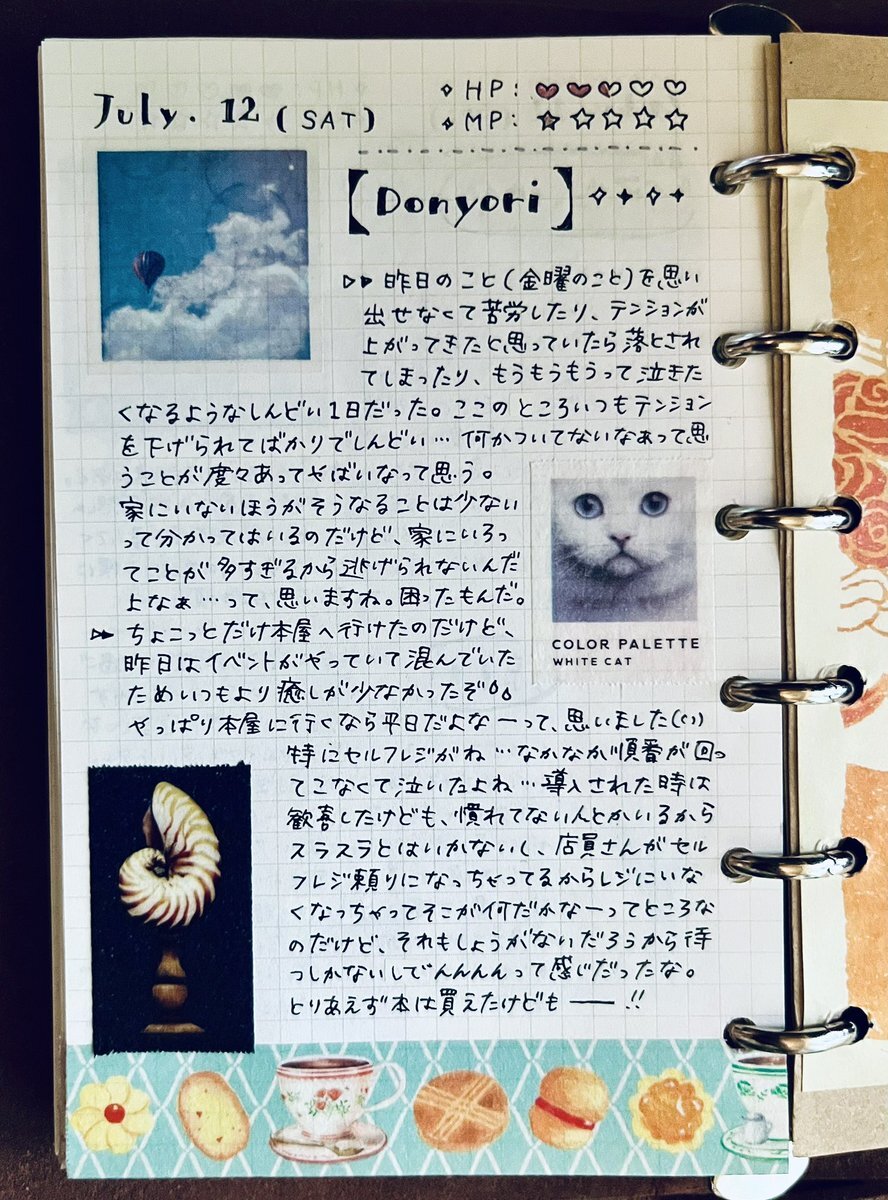 July. 12 (SAT)
HP:
MP:
【Donyori】
昨日のこと(金曜のこと)を思い
出せなくて苦労したり、テンションが
上がってきたと思っていたら落とされ
てしまったり、もうもうもうって泣きた
くなるようなしんどい1日だった。ここのところいつもテンション
を下げられてばかりでしんどい…何かついてないなぁって思
うことが度々あってやばいなって思う。
家にいないほうがそうなることは少ない
って分かってはいるのだけど、家にいろっ
てことが多すぎるから逃げられないんだ
よなぁ…って、思いますね。困ったもんだ。
COLOR PALETTE
WHITE CAT
ちょこっとだけ本屋へ行けたのだけど、
昨日はイベントがやっていて混んでいた
ためいつもより癒しが少なかったぞ
やっぱり本屋に行くなら平日だよなーって、思いました
特にセルフレジがね…なかなか順番が回っ
てこなくて泣いたよね…導入された時は
歓喜したけども、慣れてない人とかいるから
スラスラとはいかないし、店員さんがセル
フレジ頼りになっちゃってるからレジにいな
くなっちゃってそこが何だかなーってところな
のだけど、それもしょうがないだろうから待
つしかないしでんんんんって感じだったな。
とりあえず本は買えたけども——!!